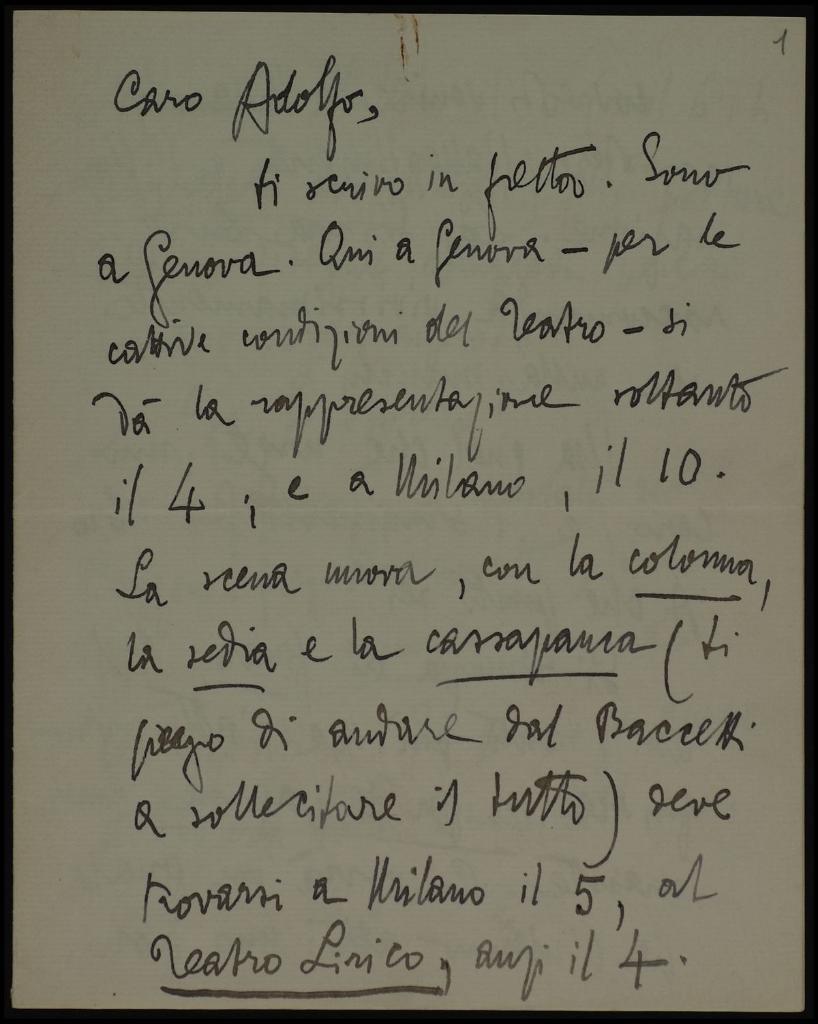 1
Caro Adolfo,
ti scrivo in fretta. Sono
a Genova. Qui a Genova – per le
cattive condizioni del Teatro – si
dà la rappresentazione soltanto
il 4 ; e a Milano , il 10.
La scena nuova , con la colonna,
la sedia e la cassapanca ( ti
prego di andare dal Baccetti
a sollecitare il tutto ) deve
trovarsi a Milano il 5, al
Teatro Lirico, anzi il 4.